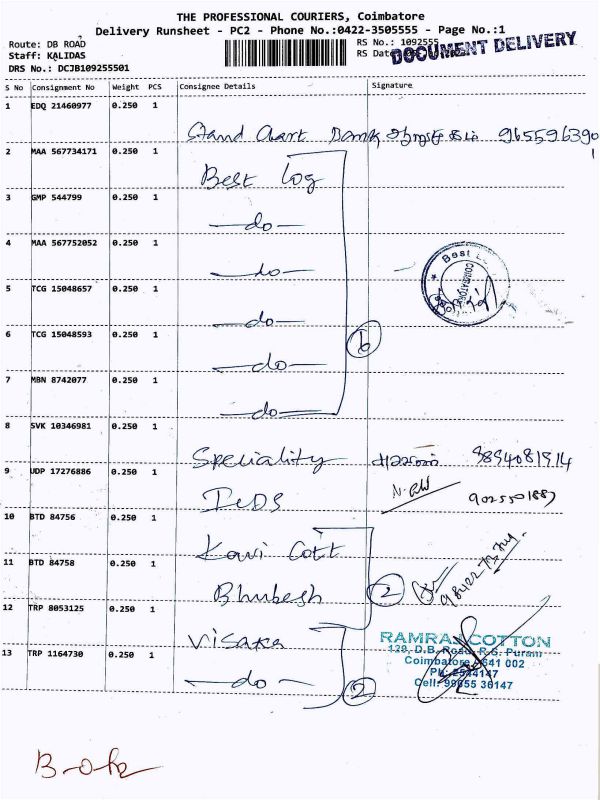 THE PROFESSIONAL COURIERS, Coimbatore
Delivery Runsheet - PC2 - Phone No.:0422-3505555 - Page No.:1
Route: DB ROAD
Staff: KALIDAS
DRS No.: DCJB109255501
RS No.: 1092555
RS Date
DOCUMENT DELIVERY
S No Consignment No Weight PCS Consignee Details Signature
1 EDQ 21460977 0.250 1
Stand Chart Bank
2 MAA 567734171 0.250 1
Best Log
3 GMP 544799 0.250 1
-do-
4 MAA 567752052 0.250 1
-do-
Best
COIMBATORE
5 TCG 15048657 0.250 1
-do-
6 TCG 15048593 0.250 1
-do-
6
7 MBN 8742077 0.250 1
-do-
8 SVK 10346981 0.250 1
Speciality 9894081914
9 UDP 17276886 0.250 1
10 BTD 84756 0.250 1
Kavi Cott
11 BTD 84758 0.250 1
Bhubesh 2
12 TRP 8053125 0.250 1
Visaka
RAMRAJ COTTON
128, D.B. Road, R.S. Puram
Coimbatore - 641 002
13 TRP 1164730 0.250 1
-do- 2
Ph: 2544147
Cell: 99655 36147